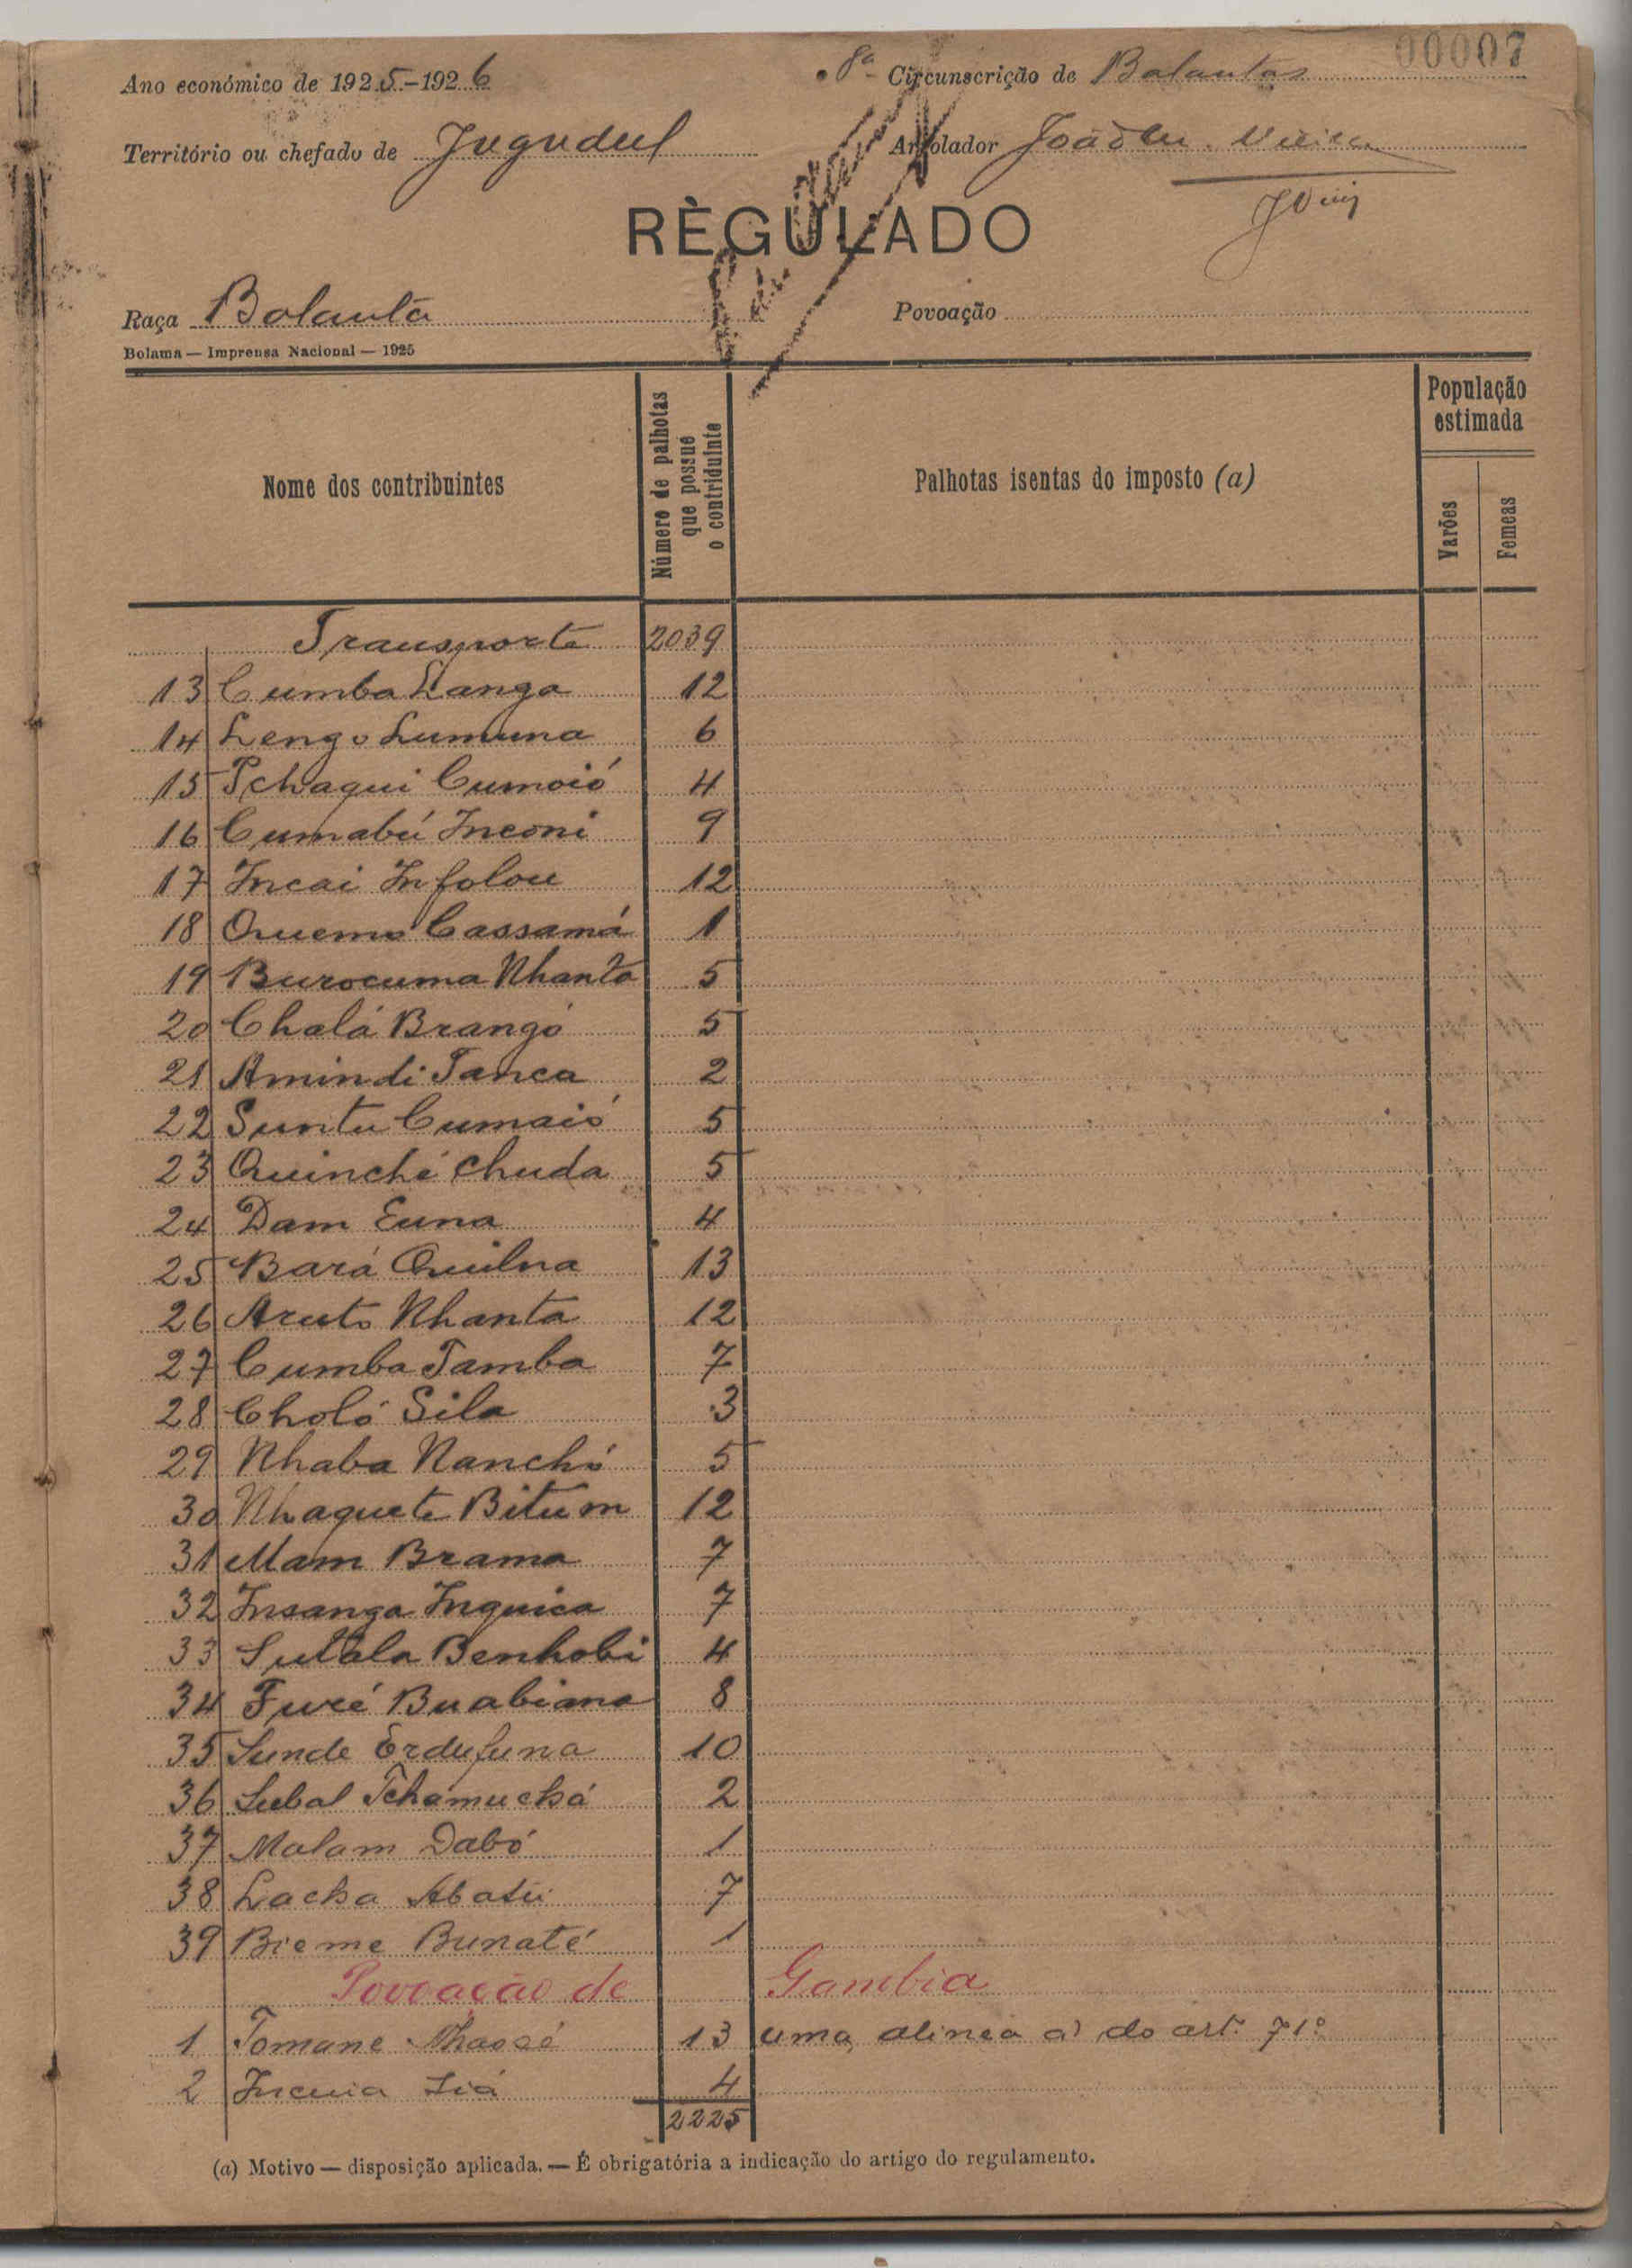 00007
Ano económico de 1925-1926 8ª Circunscrição de Balantas
Território ou chefado de Jugudul Arrolador João M. Vieira
RÈGULADO
Raça Balanta Povoação
Bolama — Imprensa Nacional — 1925
Nome dos contribuintes
Número de palhotas que possue o contriduinte
Palhotas isentas do imposto (a)
População estimada
Varões
Femeas
Transporte 2039
13 Cumba Langa 12
14 Lengo Lumuna 6
15 Tchaqui Cumoió 4
16 Cumabú Inconi 9
17 Incai Infolou 12
18 Quemo Cassamá 1
19 Burocuma Nhanta 5
20 Chalá Brangó 5
21 Amindi Tanca 2
22 Suntu Cumaió 5
23 Quinché Chuda 5
24 Dam Euna 4
25 Bará Quilna 13
26 Aruto Nhanta 12
27 Cumba Tamba 7
28 Choló Sila 3
29 Nhaba Nanchó 5
30 Nhaquete Bitum 12
31 Mam Brama 7
32 Insanga Inquica 7
33 Sutala Benhobi 4
34 Furé Buabiana 8
35 Sunde Erdufuna 10
36 Subal Tchamuchá 2
37 Malam Dabó 1
38 Lacha Abatu 7
39 Bieme Bunaté 1
Povoação de Gambia
1 Tomane 13 uma, alinea a) do art. 71º
2 4
2225
(a) Motivo — disposição aplicada. — É obrigatória a indicação do artigo do regulamento.